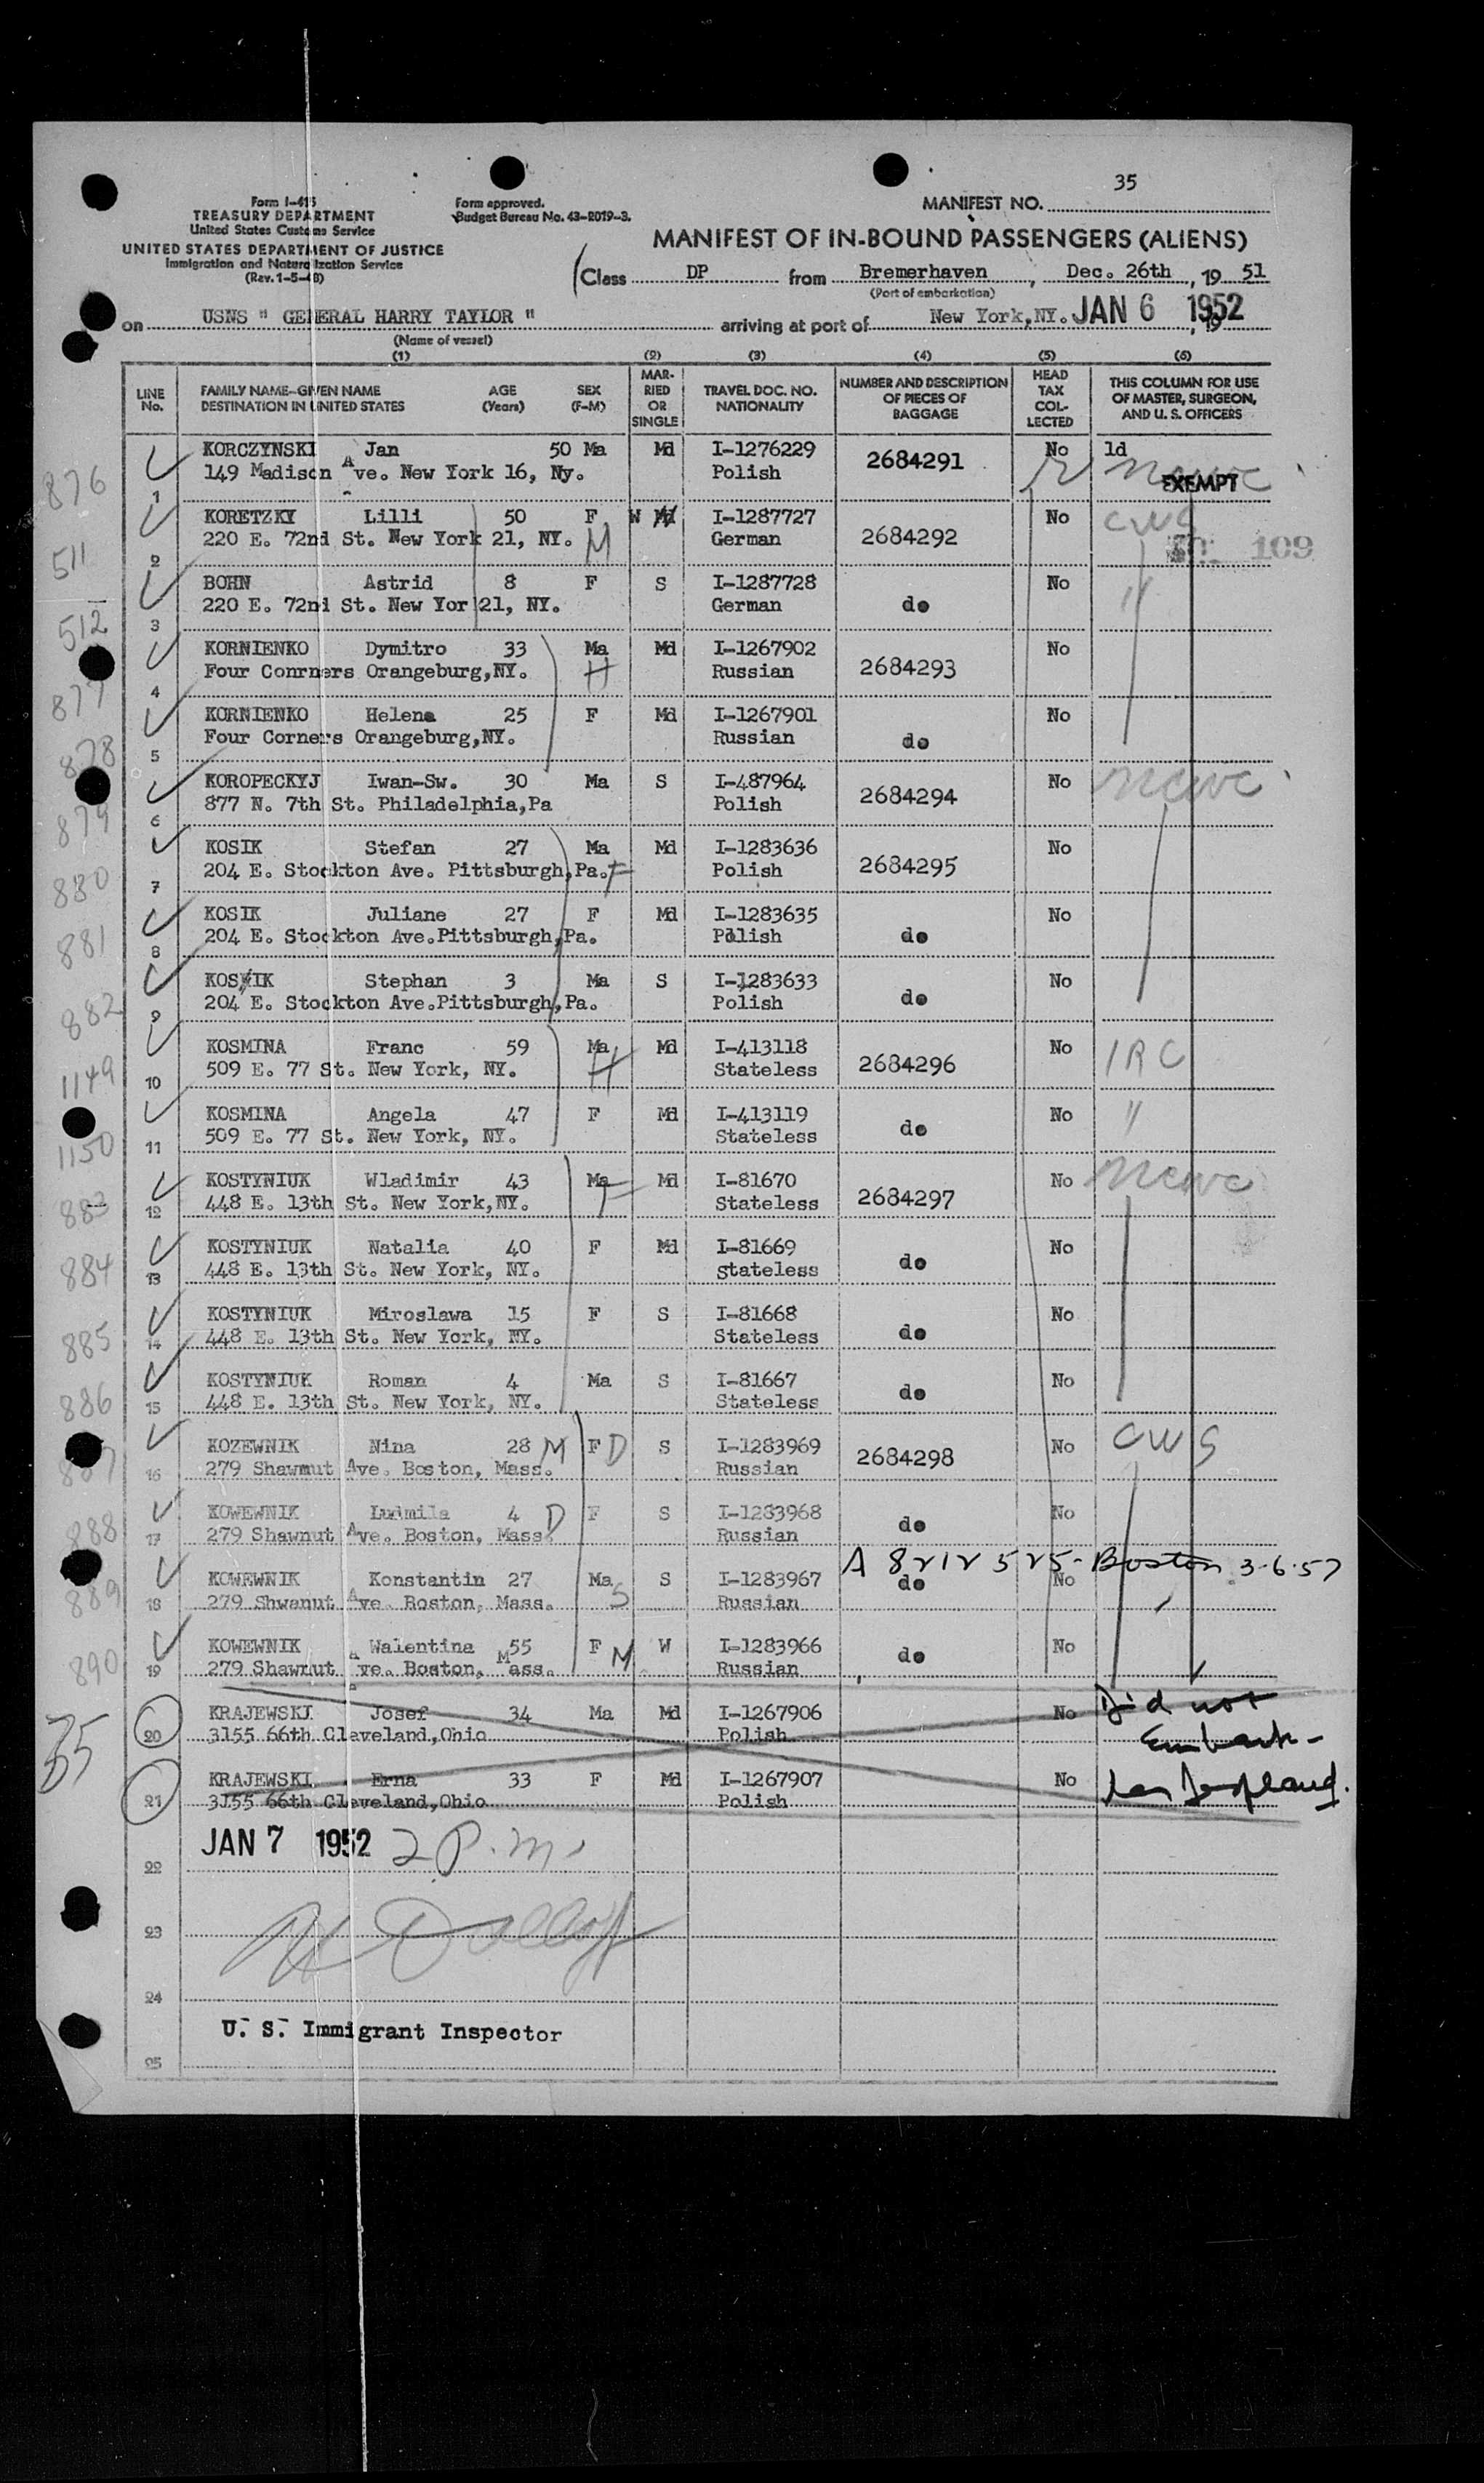 35
Form I-415
TREASURY DEPARTMENT
United States Customs Service
UNITED STATES DEPARTMENT OF JUSTICE
Immigration and Naturalization Service
(Rev. 1-5-48)
Form approved.
Budget Bureau No. 43-R019-3.
MANIFEST NO.
MANIFEST OF IN-BOUND PASSENGERS (ALIENS)
Class DP from Bremerhaven, Dec. 26th, 19 51
(Port of embarkation)
on USNS " GENERAL HARRY TAYLOR " arriving at port of New York,NY. JAN 6 1952, 19
(Name of vessel)
(1) (2) (3) (4) (5) (6)
LINE No. FAMILY NAME-GIVEN NAME DESTINATION IN UNITED STATES AGE (Years) SEX (F-M) MARRIED OR SINGLE TRAVEL DOC. NO. NATIONALITY NUMBER AND DESCRIPTION OF PIECES OF BAGGAGE HEAD TAX COLLECTED THIS COLUMN FOR USE OF MASTER, SURGEON, AND U. S. OFFICERS
KORCZYNSKI Jan 50 Ma Md I-1276229 2684291 No ld
876 1 149 Madison Ave. New York 16, Ny. Polish ncwc EXEMPT
KORETZKY Lilli 50 F W Md I-1287727 2684292 No CWS
511 2 220 E. 72nd St. New York 21, NY. M German 109
BOHN Astrid 8 F S I-1287728 do No "
512 3 220 E. 72nd St. New Yor 21, NY. German
KORNIENKO Dymitro 33 Ma Md I-1267902 2684293 No
877 4 Four Conrners Orangeburg,NY. H Russian
KORNIENKO Helena 25 F Md I-1267901 do No
878 5 Four Corners Orangeburg,NY. Russian
KOROPECKYJ Iwan-Sw. 30 Ma S I-487964 2684294 No ncwc
879 6 877 N. 7th St. Philadelphia,Pa Polish
KOSIK Stefan 27 Ma Md I-1283636 2684295 No
880 7 204 E. Stockton Ave. Pittsburgh,Pa. F Polish
KOSIK Juliane 27 F Md I-1283635 do No
881 8 204 E. Stockton Ave.Pittsburgh,Pa. Polish
KOSIK Stephan 3 Ma S I-1283633 do No
882 9 204 E. Stockton Ave.Pittsburgh,Pa. Polish
KOSMINA Franc 59 Ma Md I-413118 2684296 No IRC
1149 10 509 E. 77 St. New York, NY. H Stateless
KOSMINA Angela 47 F Md I-413119 do No "
1150 11 509 E. 77 St. New York, NY. Stateless
KOSTYNIUK Wladimir 43 Ma Md I-81670 2684297 No ncwc
883 12 448 E. 13th St. New York,NY. F Stateless
KOSTYNIUK Natalia 40 F Md I-81669 do No
884 13 448 E. 13th St. New York, NY. stateless
KOSTYNIUK Miroslawa 15 F S I-81668 do No
885 14 448 E. 13th St. New York, NY. Stateless
KOSTYNIUK Roman 4 Ma S I-81667 do No
886 15 448 E. 13th St. New York, NY. Stateless
KOZEWNIK Nina 28 M F D S I-1283969 2684298 No CWS
887 16 279 Shawmut Ave. Boston, Mass. Russian
KOWEWNIK Ludmila 4 D F S I-1283968 do No
888 17 279 Shawnut Ave. Boston, Mass. Russian
A 8212525- Boston 3-6-57
KOWEWNIK Konstantin 27 Ma S I-1283967 do No
889 18 279 Shwanut Ave. Boston, Mass. S Russian
KOWEWNIK Walentina 55 F W I-1283966 do No
890 19 279 Shawnut Ave. Boston, Mass. M Russian
KRAJEWSKI Josef 34 Ma Md I-1267906 No Did not
20 3155 66th Cleveland,Ohio Polish Embark-
35
KRAJEWSKI Erna 33 F Md I-1267907 No
21 3155 66th Cleveland,Ohio Polish
JAN 7 1952 2 P.m.
22
23
24
U. S. Immigrant Inspector
25